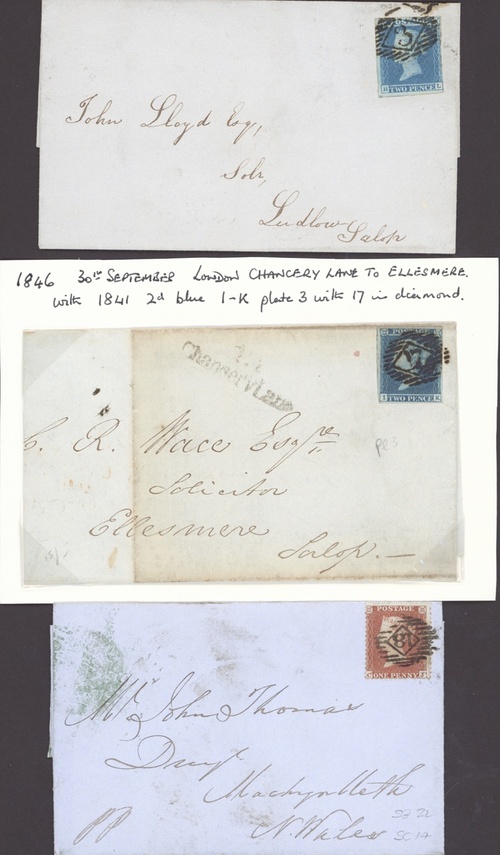 3
TWO PENCE
John Lloyd Esq,
Solr,
Ludlow
Salop
1846 30th SEPTEMBER LONDON CHANCERY LANE TO ELLESMERE.
with 1841 2d blue I-K plate 3 with 17 in diamond.
POSTAGE
I TWO PENCE K
Chancery Lane
C. R. Wace Esqre
Solicitor
Ellesmere
Salop.—
POSTAGE
ONE PENNY
Mr John Thomas
Machynlleth
N. Wales
PP